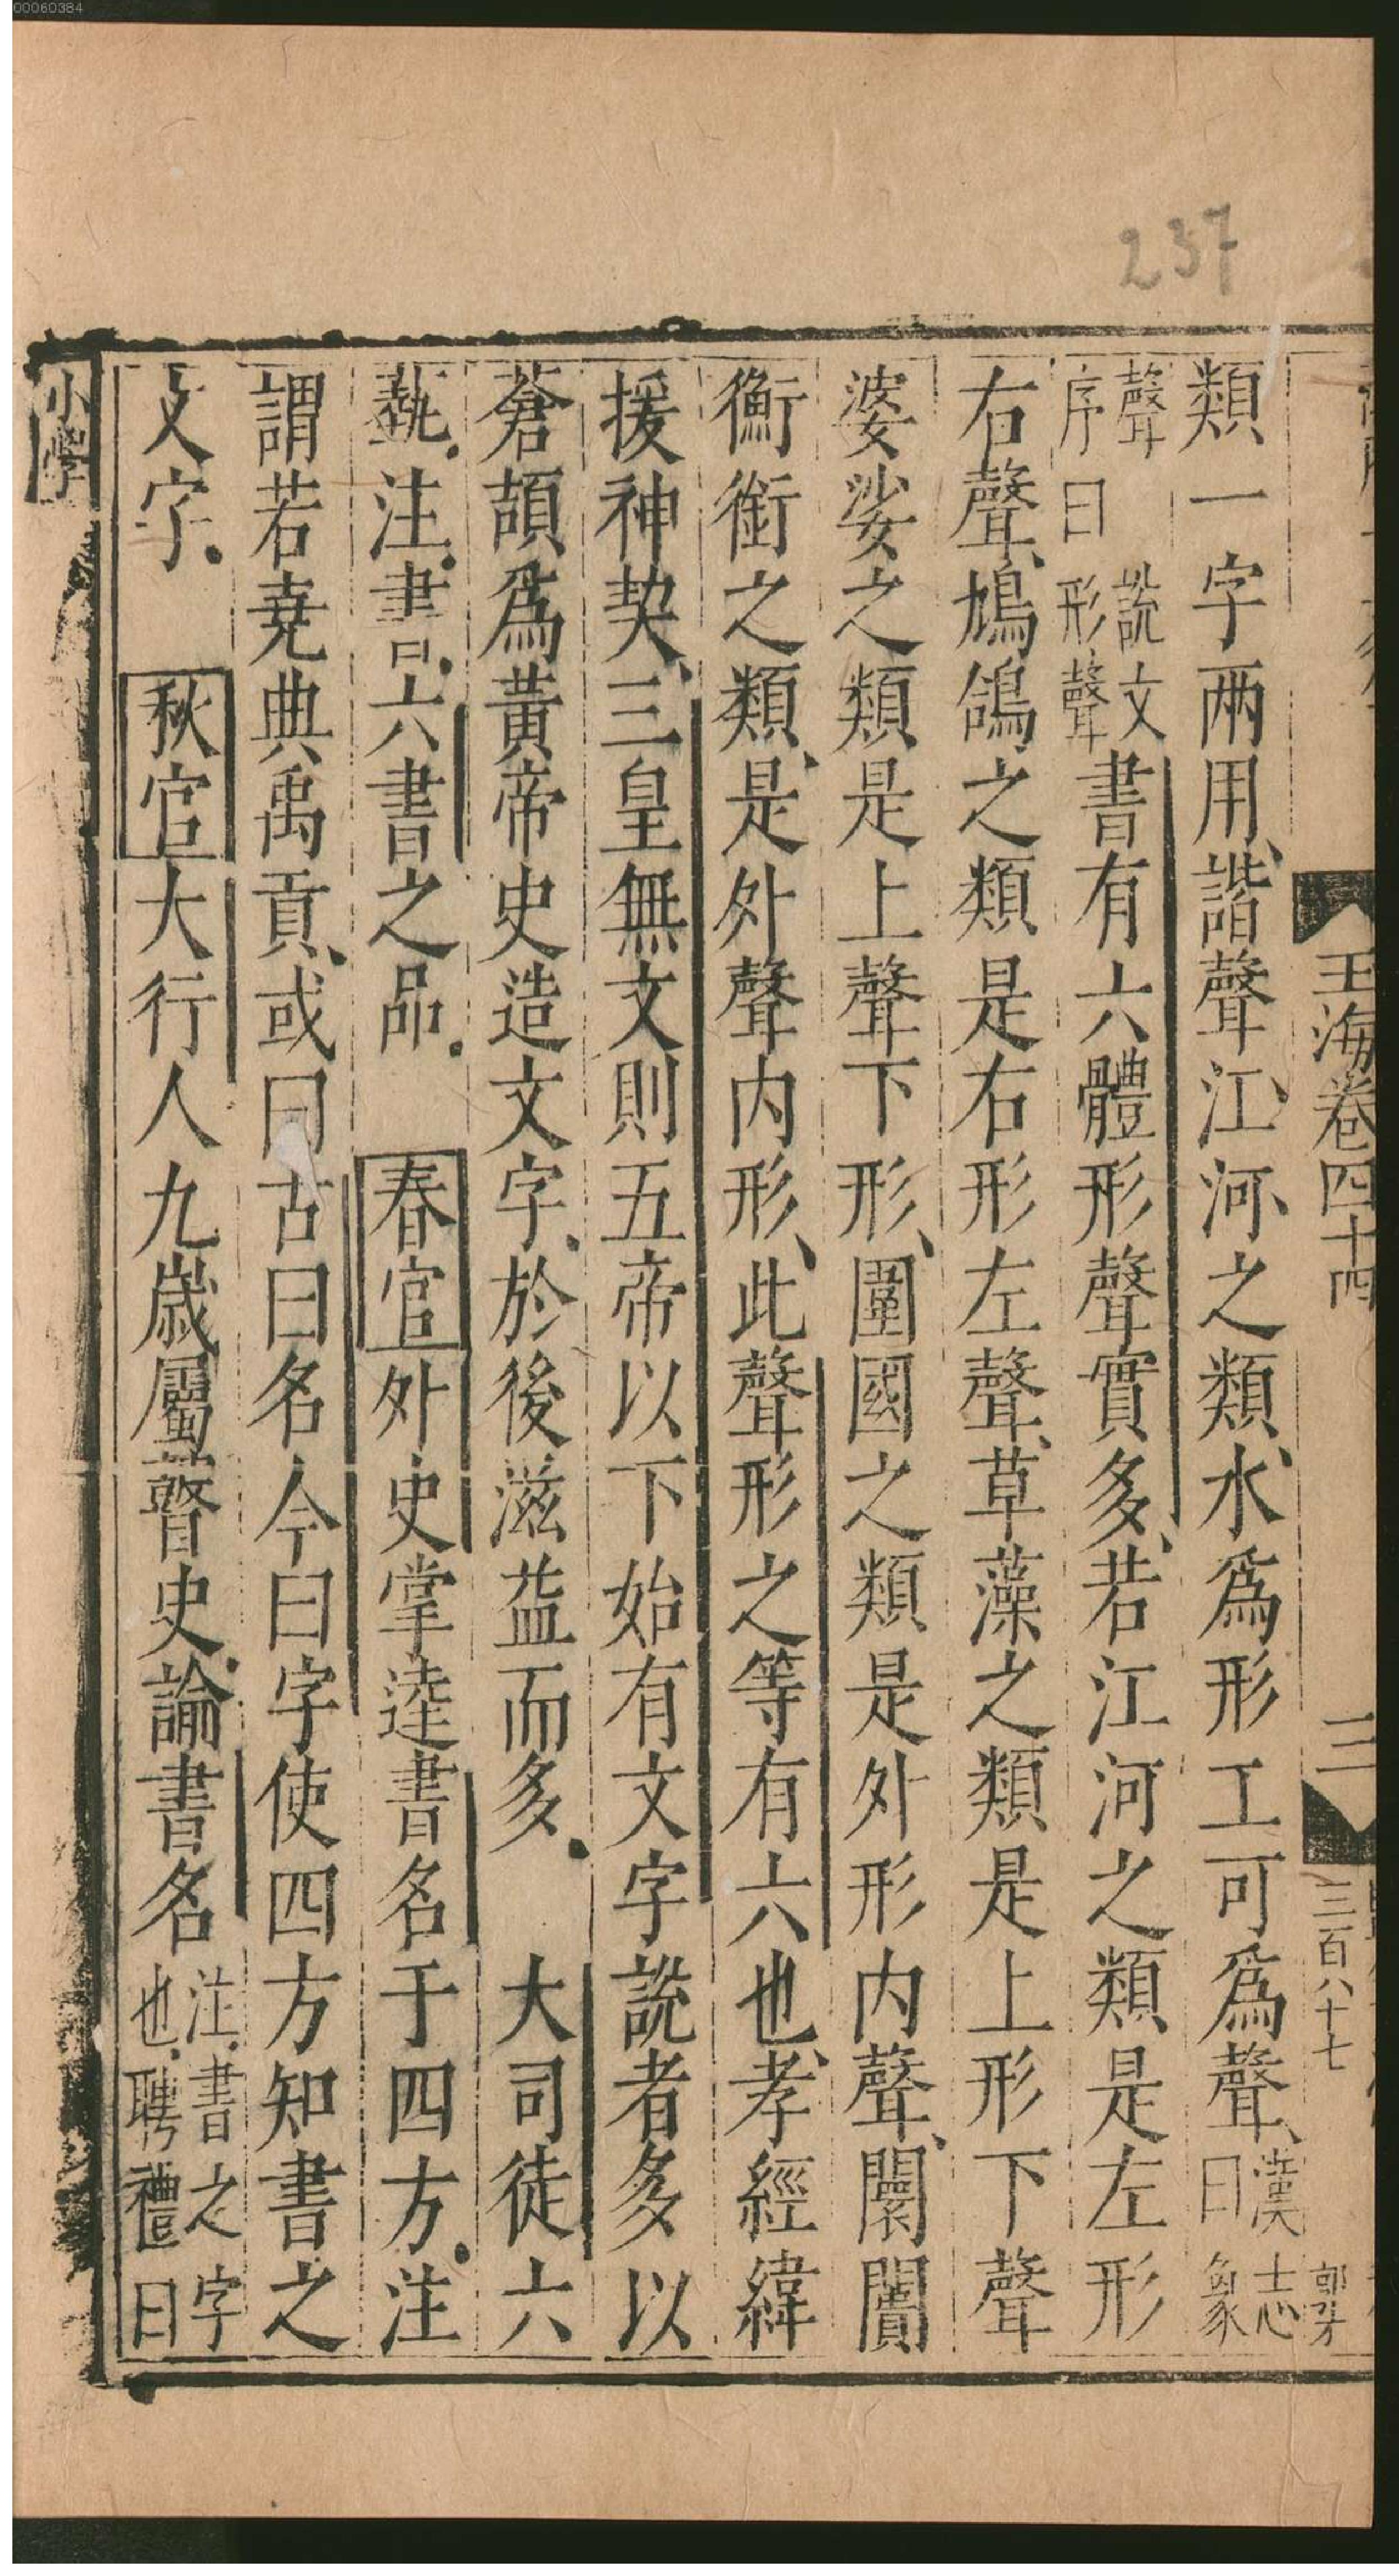 00060384
237
玉海卷四十四
三
三百八十七
郭才
類一字兩用諧聲江河之類水爲形工可爲聲漢志曰象
聲序曰說文形聲書有六體形聲實多若江河之類是左形
右聲鳩鴿之類是右形左聲草藻之類是上形下聲
婆娑之類是上聲下形圍國之類是外形内聲闤闠
衡銜之類是外聲内形此聲形之等有六也孝經緯
援神契三皇無文則五帝以下始有文字說者多以
蒼頡爲黃帝史造文字於後滋益而多 大司徒六
藝注書六書之品 春官外史掌達書名于四方注
謂若堯典禹貢或曰古曰名今曰字使四方知書之
文字 秋官大行人九歲屬瞽史諭書名注書之字也聘禮曰
小學